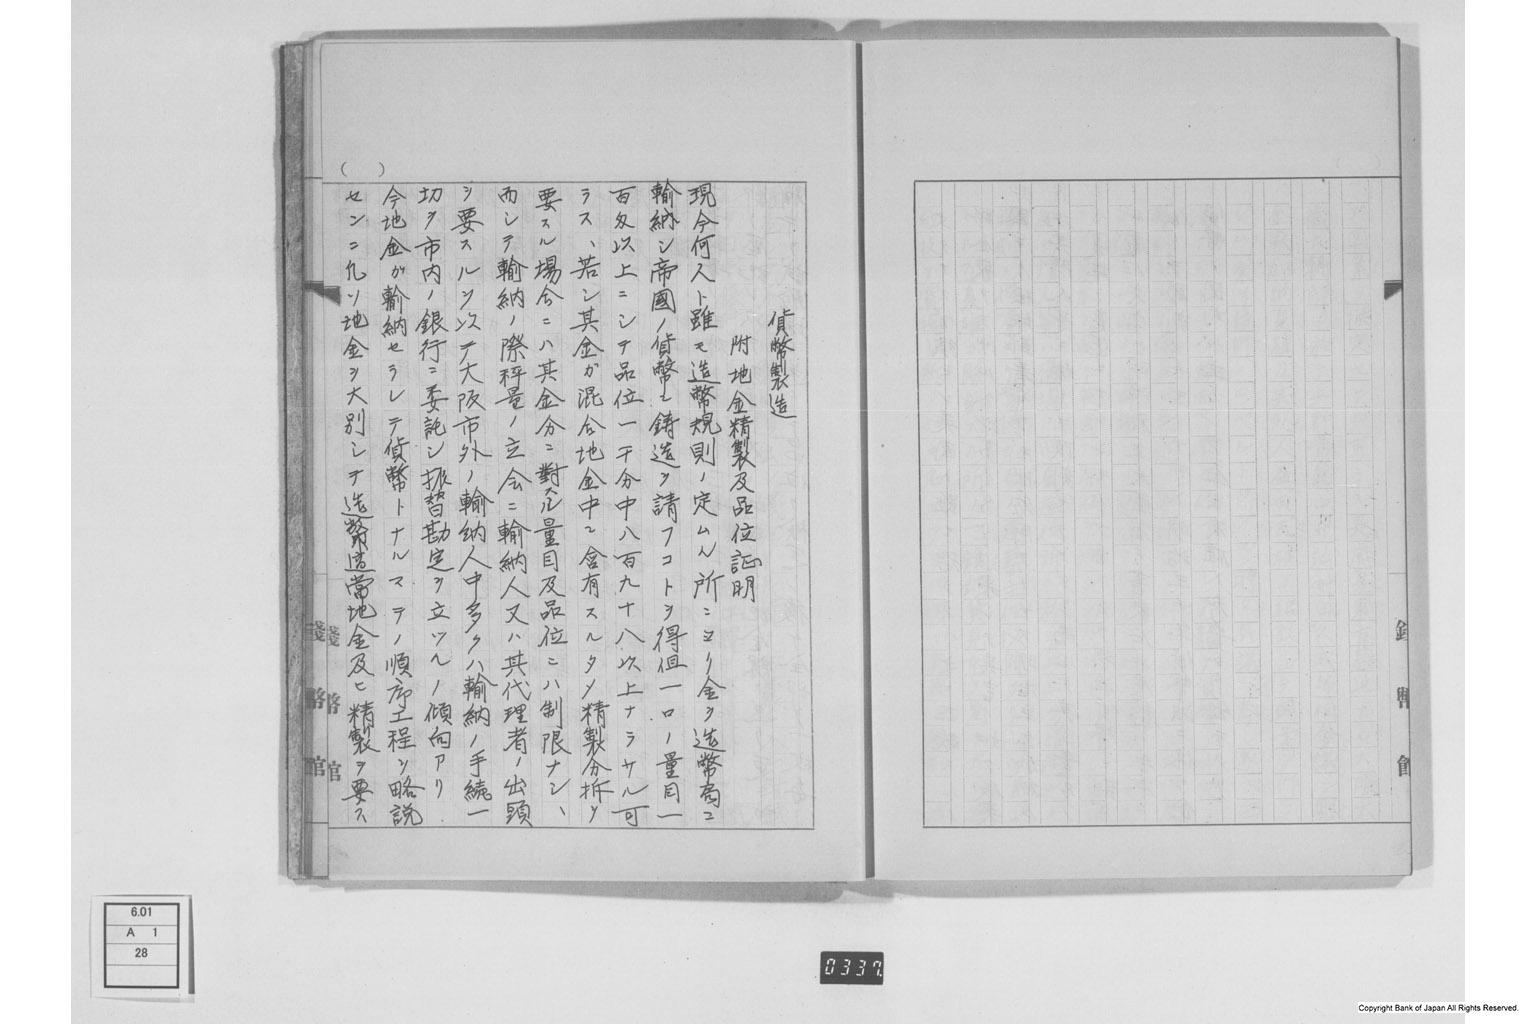 貨幣製造
附地金精製及品位証明
現今何人ト雖モ造幣規則ノ定ムル所ニヨリ金ヲ造幣局ニ
輸納シ帝國ノ貨幣ニ鋳造ヲ請フコトヲ得但一口ノ量目一
百匁以上ニシテ品位一千分中八百九十八以上ナラサル可
ラス、若シ其金ガ混合地金中ニ含有スルタメ精製分拆ヲ
要スル場合ニハ其金分ニ對スル量目及品位ニハ制限ナシ、
而シテ輸納ノ際秤量ノ立会ニ輸納人又ハ其代理者ノ出頭
ヲ要スルヲ以テ大阪市外ノ輸納人中多クハ輸納ノ手続一
切ヲ市内ノ銀行ニ委託シ振替勘定ヲ立ツルノ傾向アリ
今地金ガ輸納セラレテ貨幣トナルマテノ順序工程ヲ略説
センニ凡ソ地金ヲ大別シテ造幣適當地金及ヒ精製ヲ要ス
( )
錢幣館
6.01
A 1
28
0337
Copyright Bank of Japan All Rights Reserved.